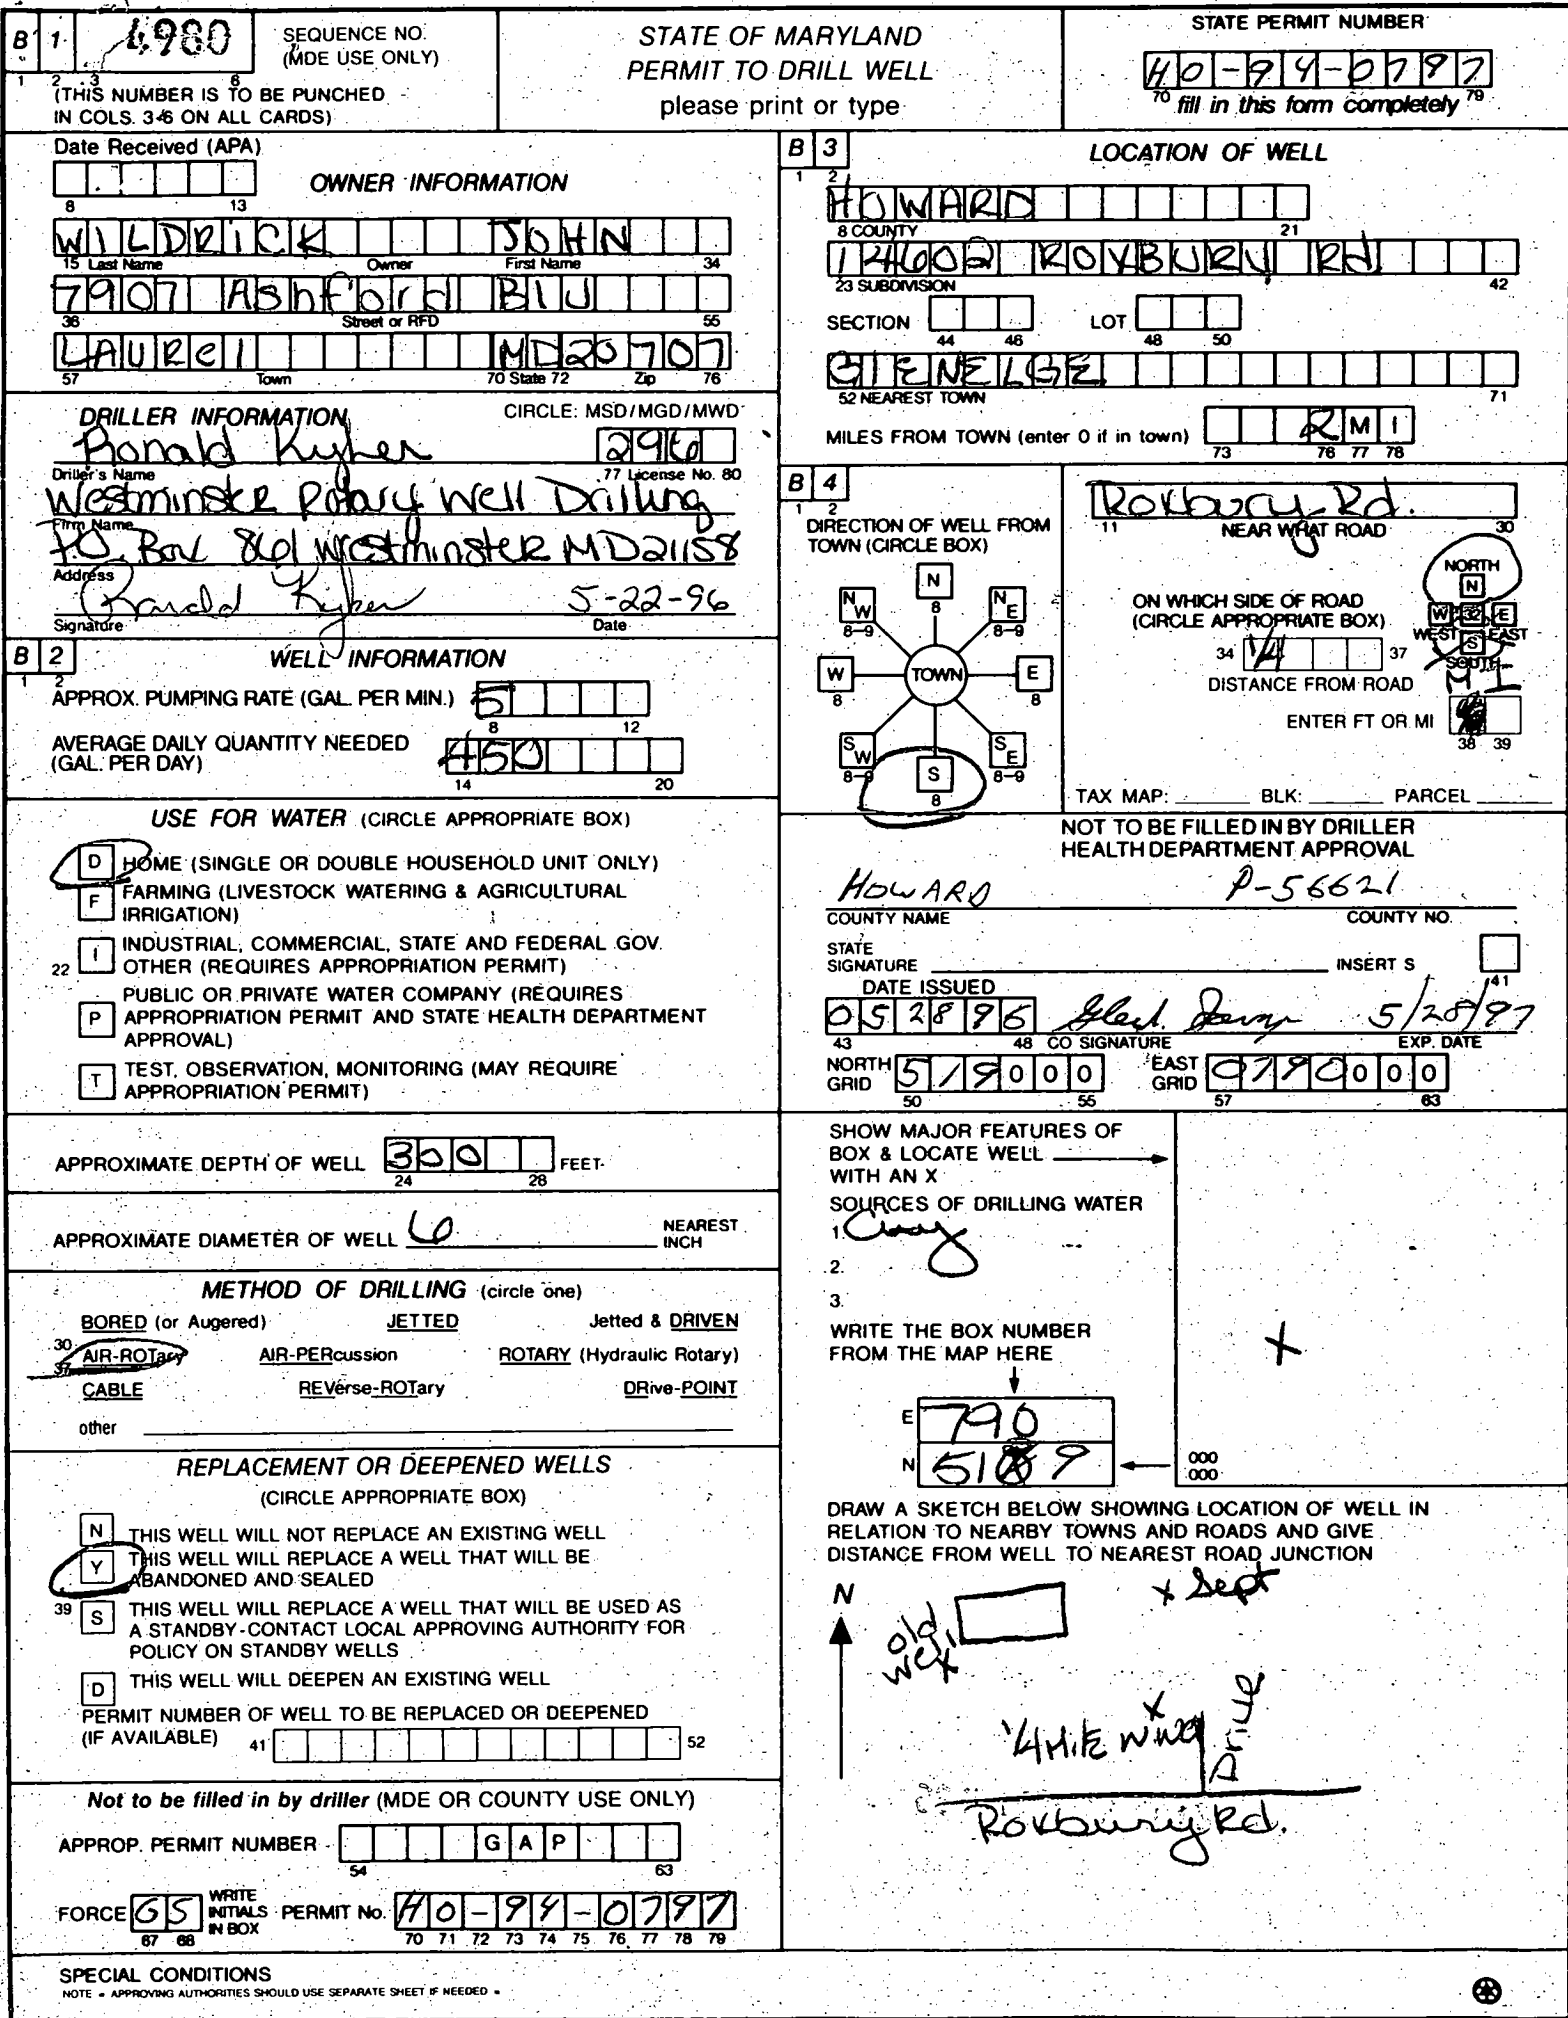 B 1 4980 SEQUENCE NO. (MDE USE ONLY)
1 2 3 6
(THIS NUMBER IS TO BE PUNCHED
IN COLS. 3-6 ON ALL CARDS)
STATE OF MARYLAND
PERMIT TO DRILL WELL
please print or type
STATE PERMIT NUMBER
HO-94-0797
70 fill in this form completely 79
Date Received (APA)
8 13
OWNER INFORMATION
WILDRICK JOHN
15 Last Name Owner First Name 34
7907 Ashford Blv
36 Street or RFD 55
LAURel MD 20707
57 Town 70 State 72 Zip 76
DRILLER INFORMATION CIRCLE: MSD/MGD/MWD
Ronald Kyker 296
Driller's Name 77 License No. 80
Westminster Rotary Well Drilling
Firm Name
P.O. Box 861 Westminster MD 21158
Address
Ronald Kyker 5-22-96
Signature Date
B 2 WELL INFORMATION
1 2
APPROX. PUMPING RATE (GAL. PER MIN.) 5
8 12
AVERAGE DAILY QUANTITY NEEDED
(GAL. PER DAY) 450
14 20
USE FOR WATER (CIRCLE APPROPRIATE BOX)
D HOME (SINGLE OR DOUBLE HOUSEHOLD UNIT ONLY)
F FARMING (LIVESTOCK WATERING & AGRICULTURAL
IRRIGATION)
22 I INDUSTRIAL, COMMERCIAL, STATE AND FEDERAL GOV.
OTHER (REQUIRES APPROPRIATION PERMIT)
P PUBLIC OR PRIVATE WATER COMPANY (REQUIRES
APPROPRIATION PERMIT AND STATE HEALTH DEPARTMENT
APPROVAL)
T TEST, OBSERVATION, MONITORING (MAY REQUIRE
APPROPRIATION PERMIT)
APPROXIMATE DEPTH OF WELL 300 FEET
24 28
APPROXIMATE DIAMETER OF WELL 6 NEAREST
INCH
METHOD OF DRILLING (circle one)
BORED (or Augered) JETTED Jetted & DRIVEN
30 AIR-ROTary AIR-PERcussion ROTARY (Hydraulic Rotary)
37 CABLE REVerse-ROTary DRive-POINT
other
REPLACEMENT OR DEEPENED WELLS
(CIRCLE APPROPRIATE BOX)
N THIS WELL WILL NOT REPLACE AN EXISTING WELL
Y THIS WELL WILL REPLACE A WELL THAT WILL BE
ABANDONED AND SEALED
39 S THIS WELL WILL REPLACE A WELL THAT WILL BE USED AS
A STANDBY-CONTACT LOCAL APPROVING AUTHORITY FOR
POLICY ON STANDBY WELLS
D THIS WELL WILL DEEPEN AN EXISTING WELL
PERMIT NUMBER OF WELL TO BE REPLACED OR DEEPENED
(IF AVAILABLE) 41 52
Not to be filled in by driller (MDE OR COUNTY USE ONLY)
APPROP. PERMIT NUMBER G A P
54 63
FORCE GS WRITE INITIALS IN BOX PERMIT No. HO-94-0797
67 68 70 71 72 73 74 75 76 77 78 79
SPECIAL CONDITIONS
NOTE = APPROVING AUTHORITIES SHOULD USE SEPARATE SHEET IF NEEDED =
B 3 LOCATION OF WELL
1 2
HOWARD
8 COUNTY 21
14602 ROXBURY Rd
23 SUBDIVISION 42
SECTION LOT
44 46 48 50
GlENELGE
52 NEAREST TOWN 71
MILES FROM TOWN (enter 0 if in town) 2 M I
73 76 77 78
B 4
1 2
DIRECTION OF WELL FROM
TOWN (CIRCLE BOX)
N
8
NW NE
8-9 8-9
W TOWN E
8 8
SW SE
8-9 8-9
S
8
Roxbury Rd.
11 NEAR WHAT ROAD 30
NORTH
N
ON WHICH SIDE OF ROAD
(CIRCLE APPROPRIATE BOX)
W 32 E
WEST EAST
S
SOUTH
34 1/4 37
DISTANCE FROM ROAD
M I
ENTER FT OR MI
38 39
TAX MAP: BLK: PARCEL
NOT TO BE FILLED IN BY DRILLER
HEALTH DEPARTMENT APPROVAL
HOWARD P-56621
COUNTY NAME COUNTY NO.
STATE
SIGNATURE INSERT S
41
DATE ISSUED
052896 5/28/97
43 48 CO SIGNATURE EXP. DATE
NORTH GRID 519000 EAST GRID 0790000
50 55 57 63
SHOW MAJOR FEATURES OF
BOX & LOCATE WELL
WITH AN X
SOURCES OF DRILLING WATER
1.
2.
3.
WRITE THE BOX NUMBER
FROM THE MAP HERE
X
E 790
N 519
000
000
DRAW A SKETCH BELOW SHOWING LOCATION OF WELL IN
RELATION TO NEARBY TOWNS AND ROADS AND GIVE
DISTANCE FROM WELL TO NEAREST ROAD JUNCTION
N
x Sept
old
well
x
x
1/4 Mile
Drive
Roxbury Rd.